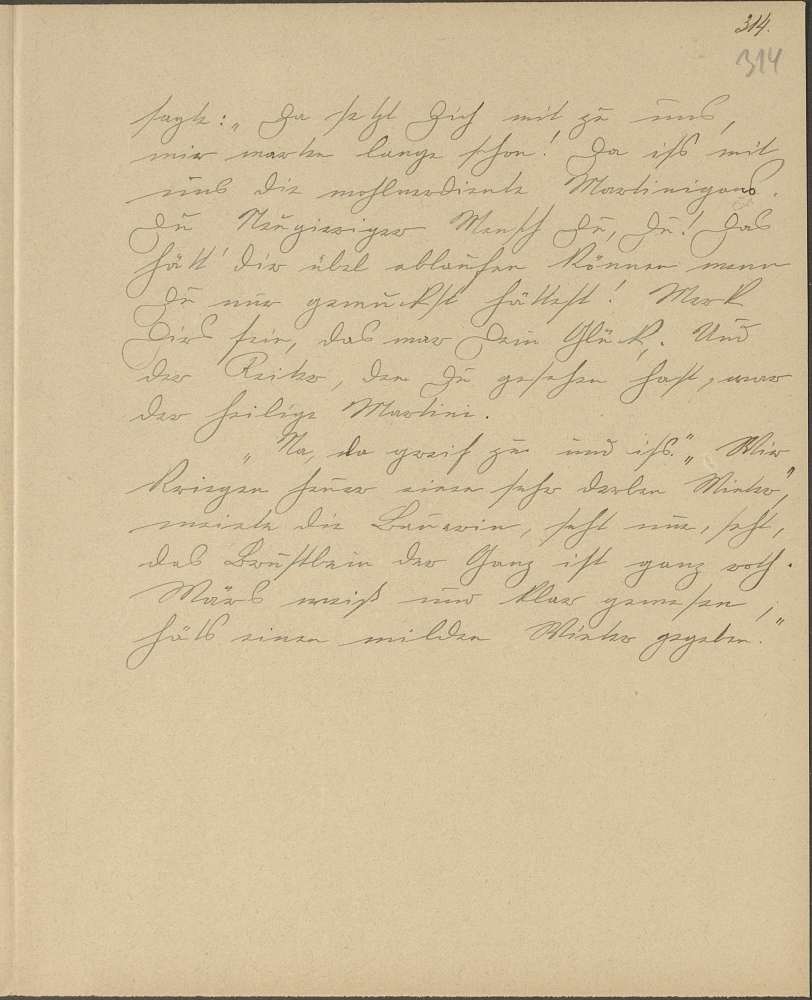 314.
314
sagte: „Da setzt Dich mit zu uns,
mir warten lange schon! Da iss mit
uns die wohlverdiente Martinigans.
Du Neugieriger Mensch Du, Du! Das
hätt' dir übel ablaufen können wenn
Du nur gemuckst hättest! Merk
Dirs fein, das war Dein Glück. Und
der Reiter, den Du gesehen hast, war
der heilige Martini.
„Na, da greif zu und iss." „Wir
kriegen heuer einen sehr derben Winter,"
meinte die Bäuerin, seht nur, seht,
das Brustbein der Ganz ist ganz roth.
Wärs weiß und klar gewesen,
häts einen milden Winter gegeben."